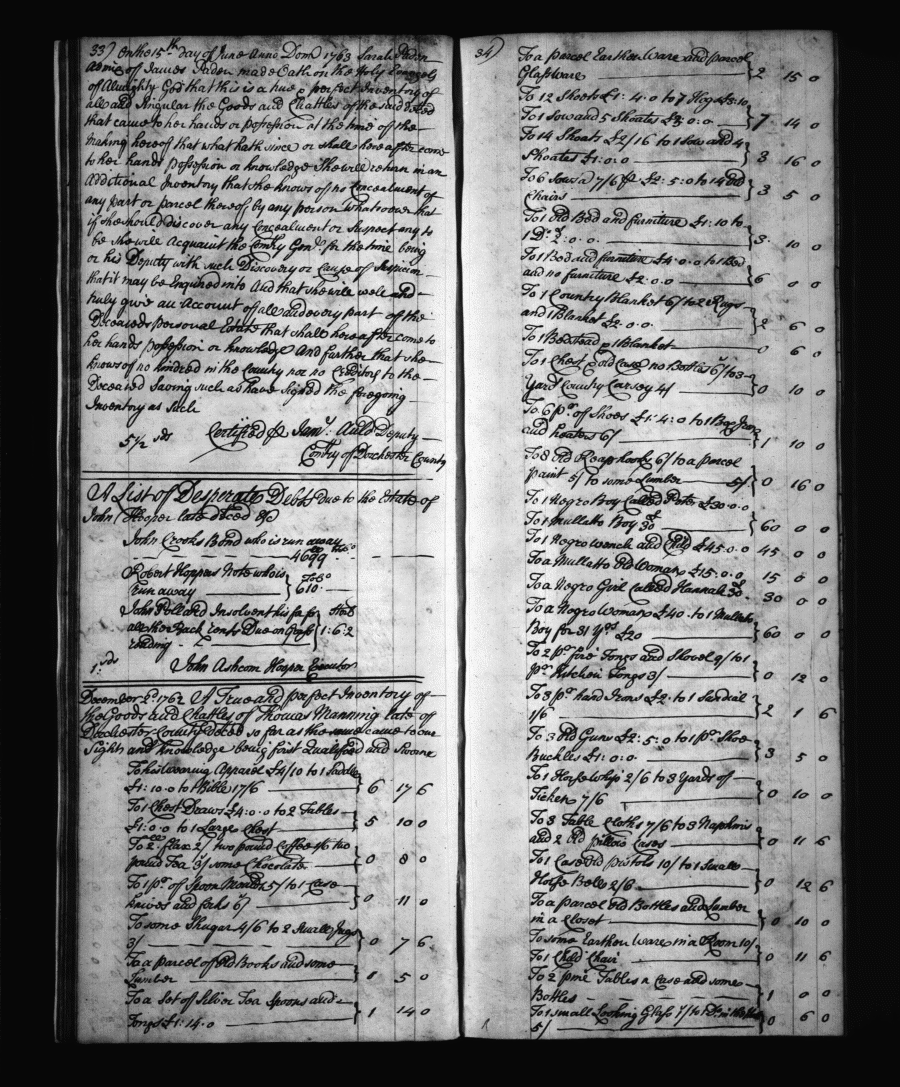 33) On the 15th day of June Anno Dom 1763 Sarah Paden
Admix of James Paden made Oath on the Holy Evangels
of Almighty God that this is a true & perfect Inventory of
all and Singular the Goods and Chattles of the said Deced
that came to her hands or possession at the time of the
making hereof that what hath since or shall hereafter come
to her hands possession or knowledge She will return in an
Additional Inventory that she knows of no Concealment of
any part or parcel thereof by any person whatsoever that
if she should discover any Concealment or Suspect any to
be she will Acquaint the Comry Genl for the time being
or his Deputy with such Discovery or Cause of Suspicion
that it may be Enquired into And that she will well and
truly give an Account of all and every part of the
Deceaseds personal Estate that shall hereafter come to
her hands possession or knowledge And further that she
knows of no kindred in the County nor no Creditor to the
Deceased Saving such as have Signed the foregoing
Inventory as such
5½ sds Certified by Auld Deputy
Comry of Dorchester County
A List of Desperate Debts due to the Estate of
John Hooper late deced
John Crooks Bond who is run away
4699
Robert Hoppers Note who is
run away } 610
John Pollard Insolvent his
all the Back rents Due on
1:6:2
1. sds John Ashcom Hooper Executor
December 2d 1762 A True and perfect Inventory of
the Goods and Chattles of Thomas Manning late of
Dorchester County deced so far as the same came to our
Sight and knowledge being first Qualified and Sworne
To his Wearing Apparel £4/10 to 1 Saddle
£1:10:0 to 1 Bible 17/6 } 6 17 6
To 1 Chest Draws £4:0:0 to 2 Tables
£1:0:0 to 1 Large Chest } 5 10 0
To 2 flax 2/ two pound Coffee two
pound Tea 3/ some Chocolate } 0 8 0
To 1 pr of Spoon Moulds 5/ to 1 Case
knives and forks 6/ } 0 11 0
To some Shugar 4/6 to 2 Small Jugs
3/ } 0 7 6
To a parcel of Old Books and some
Lumber } 1 5 0
To a Set of Silver Tea Spoons and
Tongs £1:14:0 } 1 14 0
34) To a parcel Earthen Ware and parcel
Glass Ware } 2 15 0
To 12 Shoats £1:4:0 to 7 Hogs £3:10
To 1 Sow and 5 Shoates £3:0:0 } 7 14 0
To 14 Shoats £2/16 to 1 Sow and 4
Shoates £1:0:0 } 3 16 0
To 6 Sows a 7/6 £2:5:0 to 14 Old
Chairs } 3 5 0
To 1 Old Bed and furniture £1:10 to
1 Do £2:0:0 } 3 10 0
To 1 Bed and furniture £4:0:0 to 1 Bed
and no furniture £2:0:0 } 6 0 0
To 1 Country Blanket 6/ to 2 Rugs
and Blanket £2:0:0 } 2 6 0
To 1 Bedstead & 1 Blanket 0 6 0
To 1 Chest & old Case no Bottles 6/ to 3
Yards Country Carsey 4/ } 0 10 0
To 6 pr of Shoes £1:4:0 to 1 Box Iron
and heaters 6/ } 1 10 0
To 8 Old Reap hooks 6/ to a parcel
paint 5/ to some Lumber 5/ } 0 16 0
To 1 Negro Boy Called Peter £30:0:0
To 1 Mullatto Boy £30 } 60 0 0
To 1 Negro Wench and Child £45:0:0 45 0 0
To a Mullatto Old Woman £15:0:0 15 0 0
To a Negro Girl called Hannah 30 30 0 0
To a Negro Woman £40 to 1 Mullato
Boy for 31 Yrs £20 } 60 0 0
To 2 pr fire Tongs and Shovel 9/ to 1
pr Kitchen Tongs 3/ } 0 12 0
To 3 pr hand Irons £2 to 1 Sundial
1/6 } 2 1 6
To 3 Old Guns £2:5:0 to 1 pr Shoe
Buckles £1:0:0 } 3 5 0
To 1 Horse Whip 2/6 to 3 Yards of
Ticken 7/6 } 0 10 0
To 3 Table Cloths 7/6 to 3 Napkins
and 2 Old pillow Cases } 0 11 6
To 1 Case Old pistols 10/ to 1 Small
Horse Bell 2/6 } 0 12 6
To a parcel Old Bottles and Lumber
in a Closet } 0 10 0
To some Earthen Ware in a Room 10/
To 1 Child Chair } 0 11 6
To 2 pine Tables a Case and some
Bottles } 1 0 0
To 1 small Looking Glass 1/ to 1 Do
5/ } 0 6 0